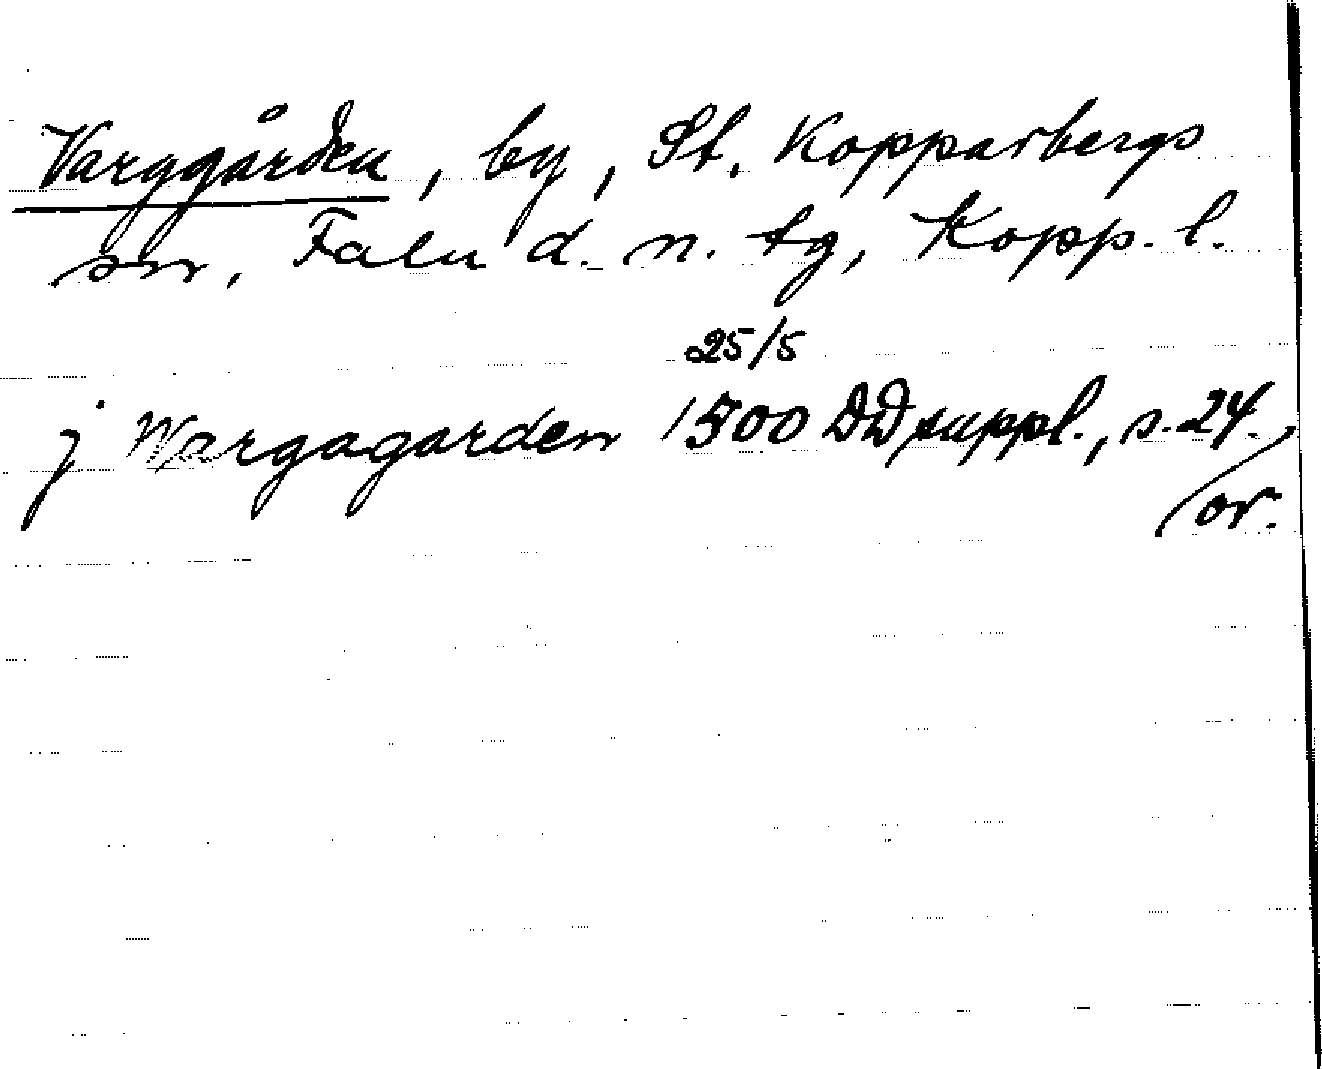 Varggården, by, St. Kopparbergs
sn, Falu d. n. tg, Kopp. l.
25/5
j Wargagarden 1500 DD suppl., s. 24.,
or.